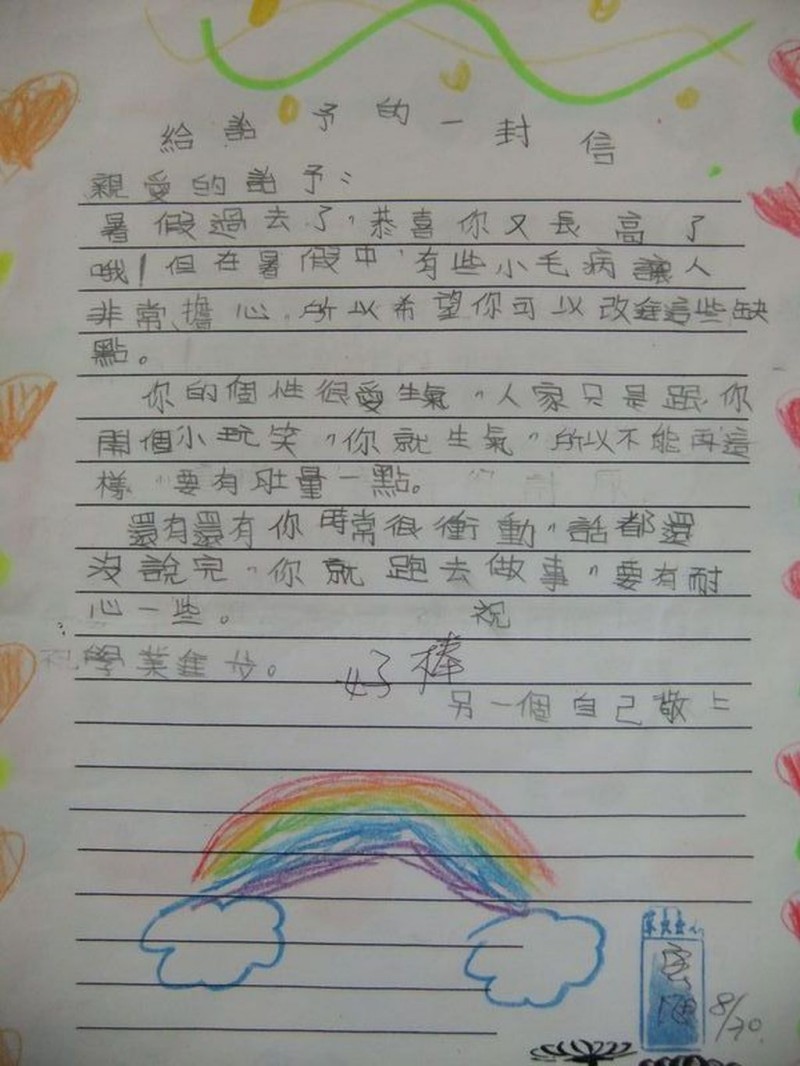 給詒予的一封信
親愛的詒予：
暑假過去了，恭喜你又長高了
哦！但在暑假中，有些小毛病讓人
非常擔心，所以希望你可以改進這些缺
點。
你的個性很愛生氣，人家只是跟你
開個小玩笑，你就生氣，所以不能再這
樣，要有肚量一點。
還有還有你時常很衝動，話都還
沒說完，你就跑去做事，要有耐
心一些。 祝
學業進步。 好棒
另一個自己敬上
8/30